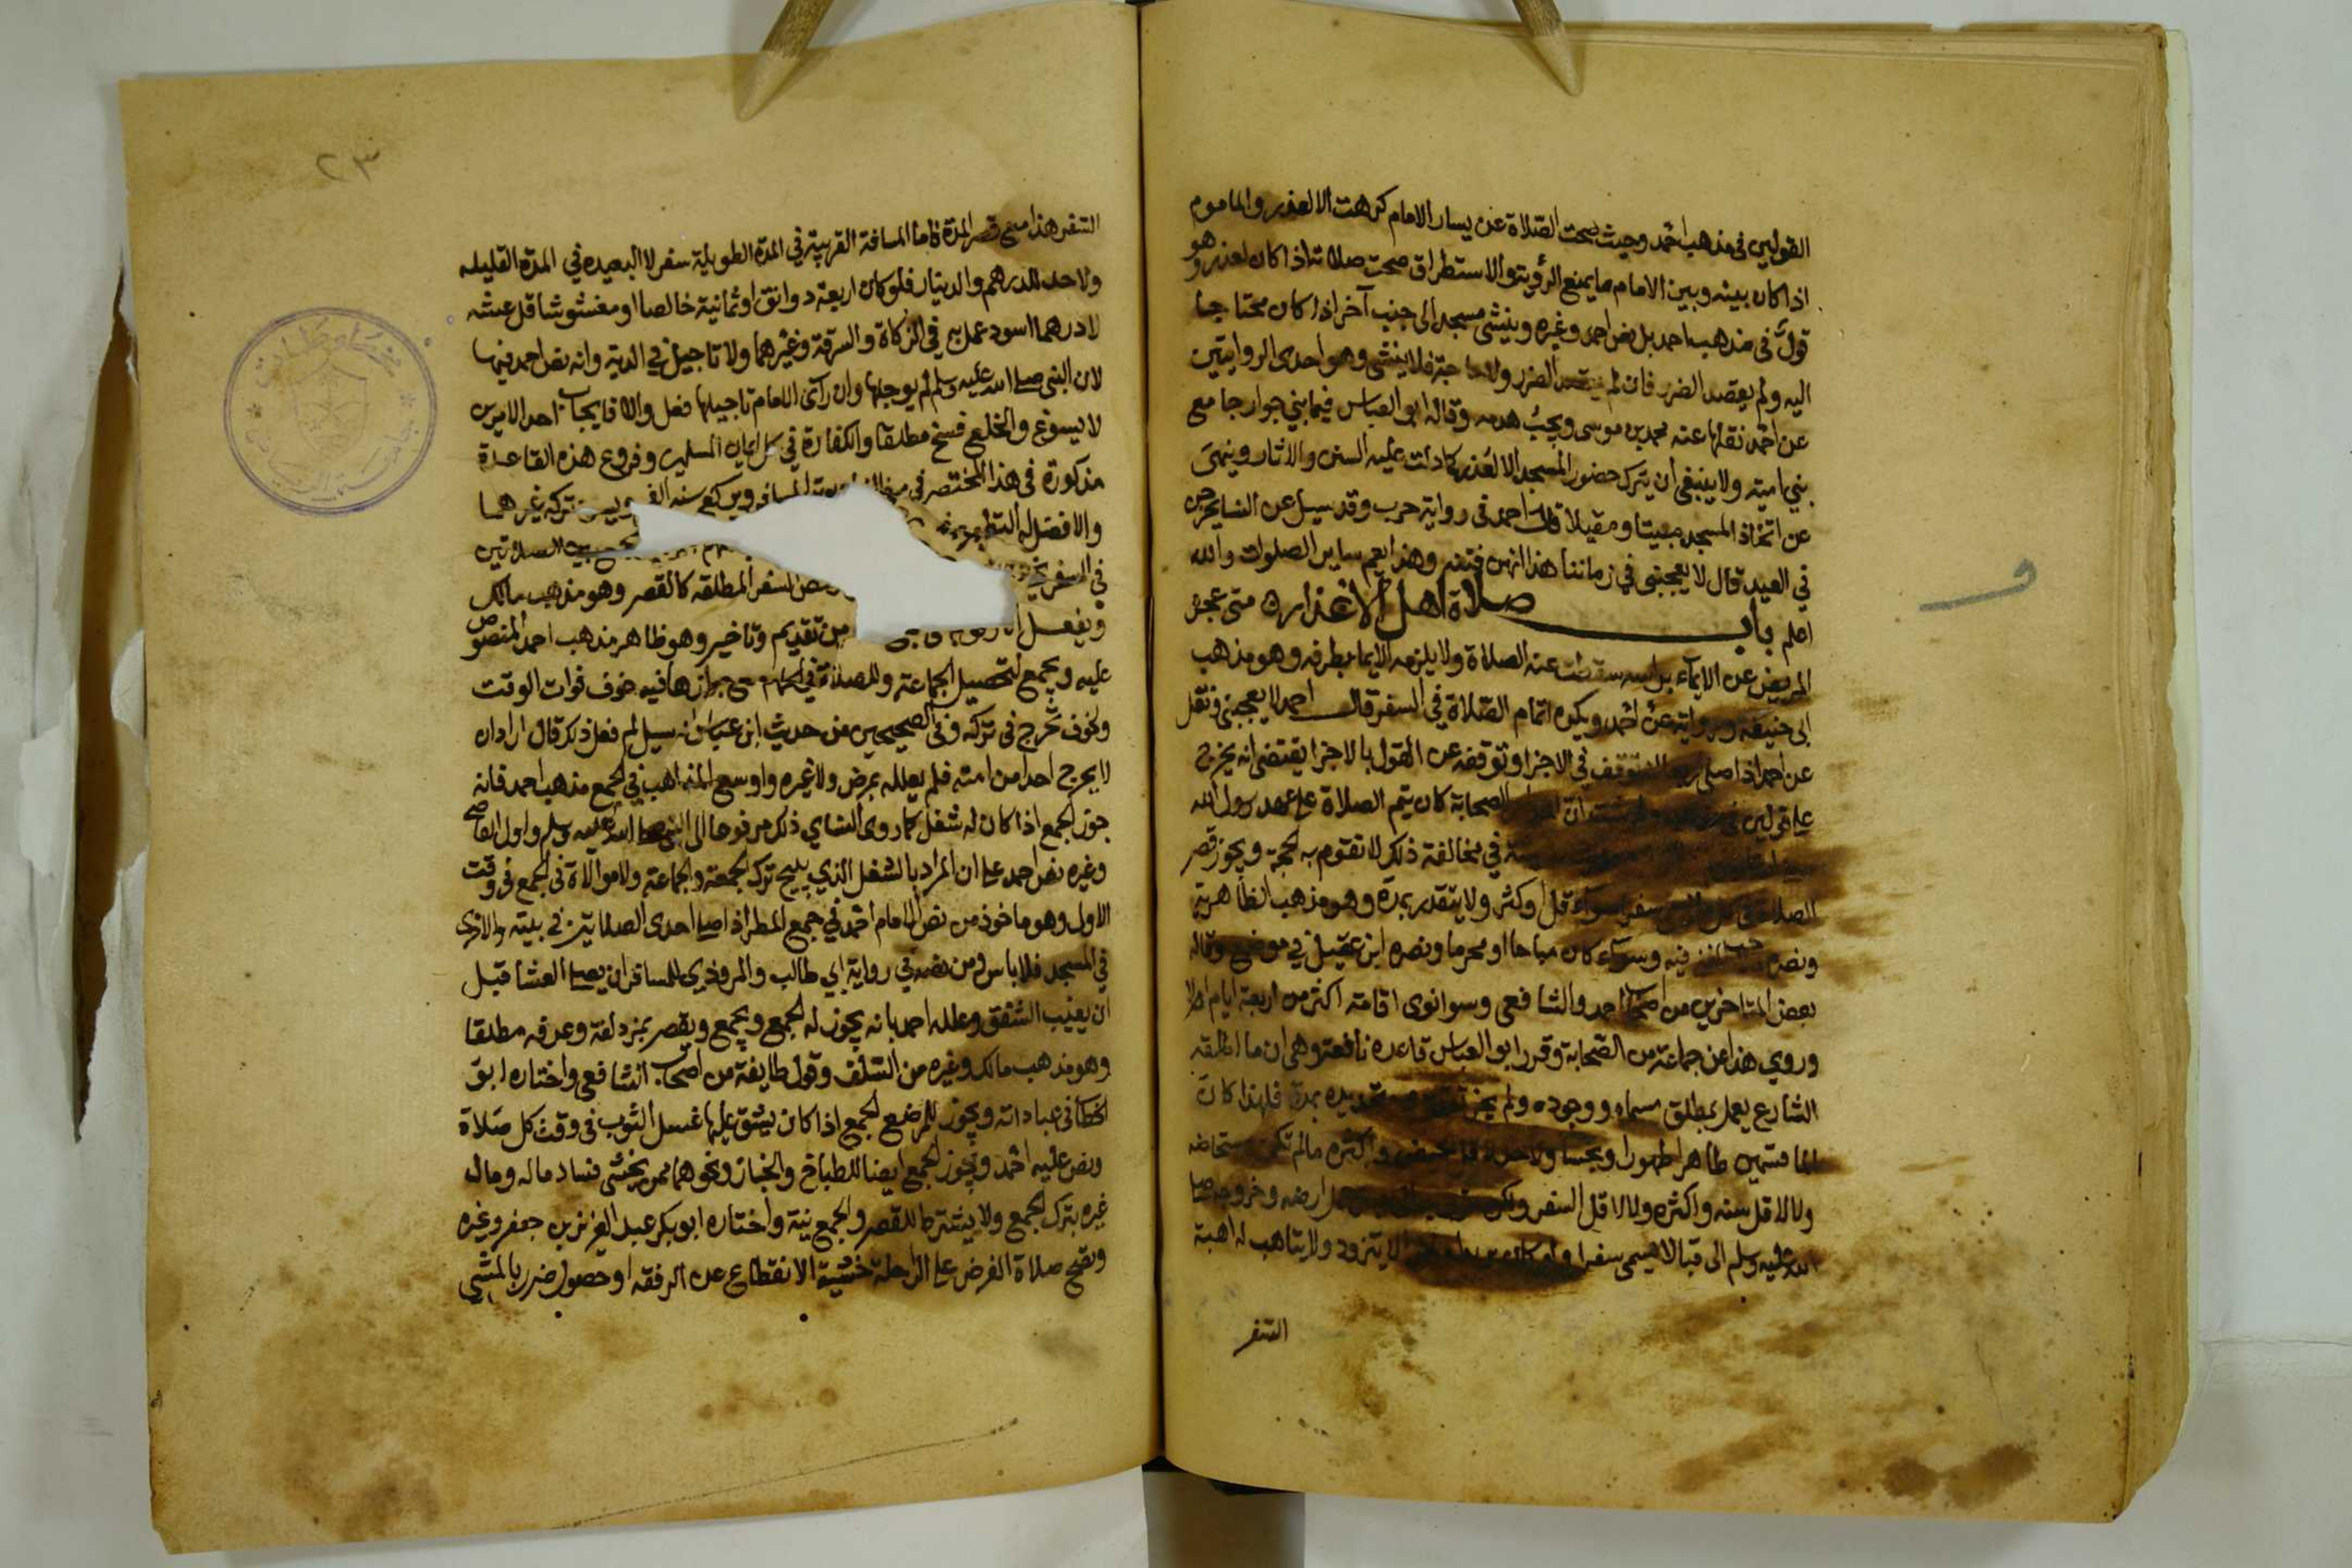 القولين في مذهب احمد وحيث صحت الصلاة عن يسار الامام كرهت الا لعذر والماموم
اذا كان بينه وبين الامام ما يمنع الرؤية والاستطراق صحت صلاته اذا كان لعذر وهو
قول في مذهب احمد بل نص احمد وغيره وينشي مسجد الى جنب آخر اذا كان محتاجا
اليه ولم يقصد الضرر فان لم يقصد الضرر ولا حاجة فلا ينشي وهو احدى الروايتين
عن احمد نقلها عنه محمد بن موسى ويجب هدمه وقاله ابو العباس فيما بني جوار جامع
بني امية ولا ينبغي ان يترك حضور المسجد الا لعذر كما دلت عليه السنن والاثار وينهى
عن اتخاذ المسجد مبيتا ومقيلا قال احمد في رواية حرب وقد سيل عن النسا يخرجن
في العيد قال لا يعجبني في زماننا هذا انهن فتنة وهذا يعم ساير الصلوات والله
اعلم باب صلاة اهل الاعذار متى عجز
المريض عن الايماء براسه سقطت عنه الصلاة ولا يلزمه الايما بطرفه وهو مذهب
ابى حنيفة ورواية عن احمد ويكره اتمام الصلاة في السفر قال احمد لا يعجبني ونقل
عن احمد اذا صلى التوقف في الاجزا وتوقفه عن القول بالاجزا يقتضي انه يخرج
على قولين الصحابة كان يتم الصلاة على عهد رسول الله
في مخالفة ذلك لا تقوم به الحجة ويجوز قصر
الصلاة سفر سواء قل او كثر ولا يتقدر بمدة وهو مذهب الظاهرية
ونصره فيه وسواء كان مباحا او محرما ونصره ابن عقيل في موضع وقاله
بعض المتاخرين من اصحاب احمد والشافعي وسوا نوى اقامة اكثر من اربعة ايام اولا
وروي هذا عن جماعة من الصحابة وقرر ابو العباس قاعدة نافعة وهي ان ما اطلقه
الشارع يعمل بمطلق مسماه ووجوده ولم يجز بمدة فلهذا كان
الما قسمين طاهرا طهورا او نجسا ولا حد لاقل الحيض واكثره ما لم تكن مستحاضة
ولا لاقل سنه واكثره ولا لاقل السفر ارضه وخروجه صلى
الله عليه وسلم الى قبا لا يسمى سفرا لا يتزود ولا يتاهب له اهبة
السفر
٢٣
السفر هذا مع قصر المدة فاما المسافة القريبة في المدة الطويلة سفر لا البعيده في المدة القليله
ولا حد للدرهم والدينار فلو كان اربعة دوانق او ثمانية خالصا او مغشوشا قل غشه
لا درهما اسود عمل به في الزكاة والسرقة وغيرهما ولا تاجيل في الدية وانه نص احمد فيها
لان النبي صلى الله عليه وسلم لم يوجلها وان رآى الامام تاجيلها فعل والا فايجاب احد الامرين
لا يسوغ والخلع فسخ مطلقا والكفارة في كل ايمان المسلمين وفروع هذه القاعدة
مذكورة في هذا المختصر في المسافر ويركع سنة الفجر ويسن تركه غيرهما
والافضل له التطوع الجمع بين الصلاتين
في السفر السفر المطلقه كالقصر وهو مذهب مالك
ويفعل من تقديم وتاخير وهو ظاهر مذهب احمد المنصوص
عليه ويجمع لتحصيل الجماعة وللصلاة في الحمام مع جوازها فيه خوف فوات الوقت
ولخوف تحرج في تركه وفي الصحيحين من حديث ابن عباس انه سيل لم فعل ذلك قال اراد ان
لا يحرج احدا من امته فلم يعلله بمرض ولا غيره واوسع المذاهب في الجمع مذهب احمد فانه
جوز الجمع اذا كان له شغل كما روى النساي ذلك مرفوعا الى النبي صلى الله عليه وسلم واول القاضي
وغيره نص احمد على ان المراد بالشغل الذي يبيح ترك الجمعة والجماعة ولا موالاة في الجمع في وقت
الاول وهو ماخوذ من نص الامام احمد في جمع المطر اذا صلى احدى الصلاتين في بيته والاخرى
في المسجد فلا باس ومن نصه في رواية ابي طالب والمروذي للمسافر ان يصلي العشا قبل
ان يغيب الشفق وعلله احمد بانه يجوز له الجمع ويجمع ويقصر بمزدلفة وعرفه مطلقا
وهو مذهب مالك وغيره من السلف وقول طايفة من اصحاب الشافعي واختاره ابو
الخطاب في عباداته ويجوز للمرضع الجمع اذا كان يشق عليها غسل الثوب في وقت كل صلاة
ونص عليه احمد ويجوز الجمع ايضا للطباخ والخباز ونحوهما ممن يخشى فساد ماله ومال
غيره بترك الجمع ولا يشترط للقصر والجمع نية واختاره ابو بكر عبد العزيز بن جعفر وغيره
وتصح صلاة الفرض على الراحلة خشية الانقطاع عن الرفقه او حصول ضرر بالمشي